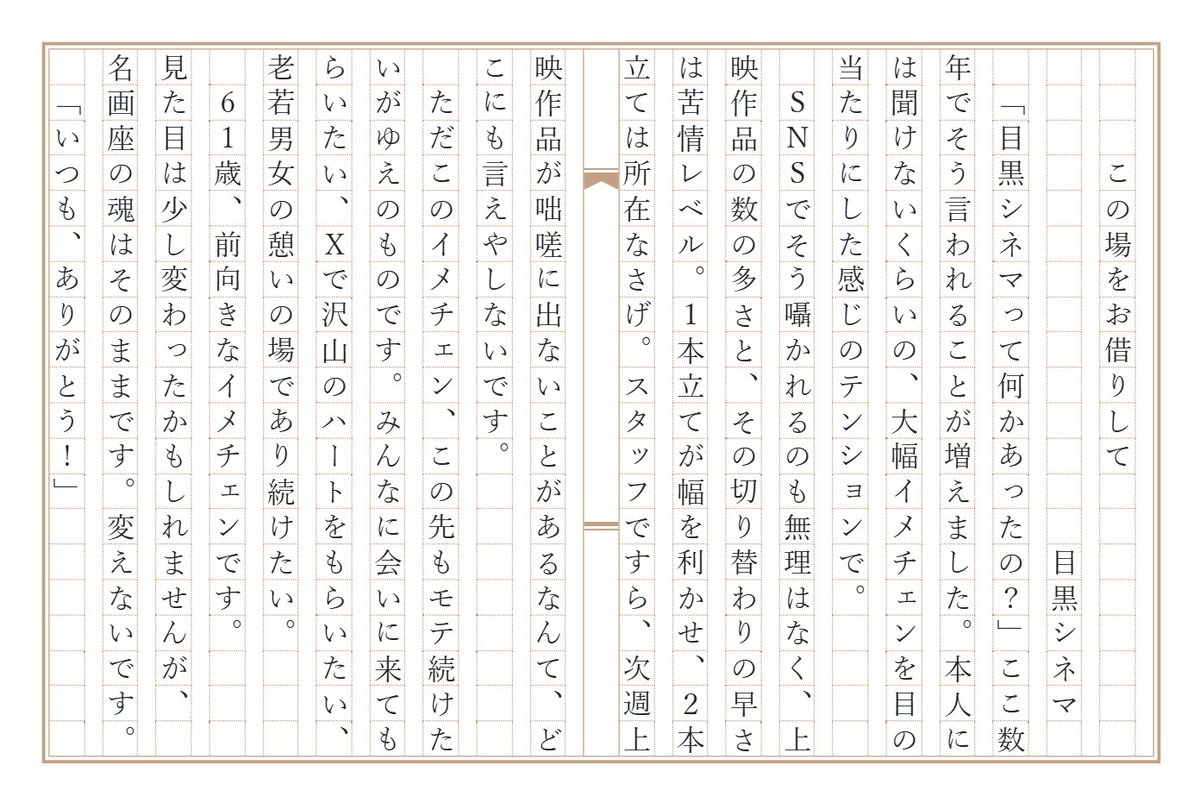 この場をお借りして
目黒シネマ
「目黒シネマって何かあったの?」ここ数
年でそう言われることが増えました。本人に
は聞けないくらいの、大幅イメチェンを目の
当たりにした感じのテンションで。
SNSでそう囁かれるのも無理はなく、上
映作品の数の多さと、その切り替わりの早さ
は苦情レベル。1本立てが幅を利かせ、2本
立ては所在なさげ。スタッフですら、次週上
映作品が咄嗟に出ないことがあるなんて、ど
こにも言えやしないです。
ただこのイメチェン、この先もモテ続けた
いがゆえのものです。みんなに会いに来ても
らいたい、Xで沢山のハートをもらいたい、
老若男女の憩いの場であり続けたい。
61歳、前向きなイメチェンです。
見た目は少し変わったかもしれませんが、
名画座の魂はそのままです。変えないです。
「いつも、ありがとう!」